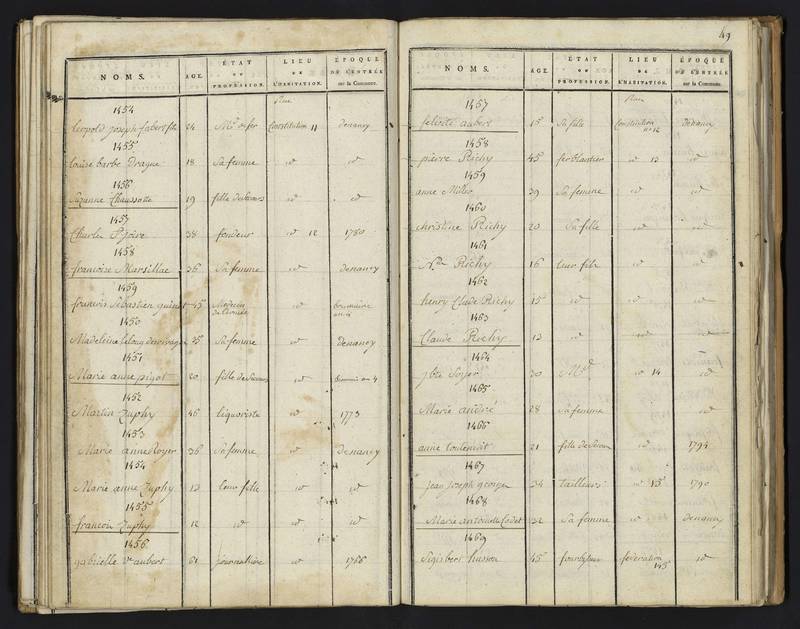 NOMS. AGE. ÉTAT OU PROFESSION. LIEU DE L'HABITATION. ÉPOQUE DE L'ENTRÉE sur la Commune.
Rue
1454
Leopold Joseph fabert fils 24 Md de fer Constitution 11 de nancy
1455
louise barbe Drague 18 Sa femme id id
1456
Suzanne Chaussotte 19 fille de id id
1457
Charles 38 fondeur id 12 1780
1458
francoise Marsillac 36 Sa femme id de nancy
1459
francois Sebastien 45 Medecin id brumaire
1450
Madeleine 25 Sa femme id de nancy
1451
Marie anne pigot 20 fille de id an 4
1452
Martin Zuphy 46 liquoriste id 1773
1453
Marie anne Royer 36 Sa femme id de nancy
1454
Marie anne Zuphy 13 leur fille id id
1455
francois Zuphy 12 id id id
1456
gabrielle ve aubert 61 journaliere id 1766
49
NOMS. AGE. ÉTAT OU PROFESSION. LIEU DE L'HABITATION. ÉPOQUE DE L'ENTRÉE sur la Commune.
Rue
1457
felicité aubert 15 Sa fille Constitution n° 12 de nancy
1458
pierre Richy 45 ferblantier id 13 id
1459
anne Miller 39 Sa femme id id
1460
christine Richy 20 Sa fille id id
1461
Nas Richy 16 leur fils id id
1462
henry Claude Richy 15 id id id
1463
Claude Richy 13 id id id
1464
jbte Soyer 30 Md id 14 id
1465
Marie andré 28 Sa femme id
1466
anne 21 fille de id 1794
1467
jean Joseph george 34 tailleur id 13 1790
1468
Marie antoinette Cadet 32 Sa femme id de nancy
1469
Sigisbert husson 45 fourbisseur federation 145 id